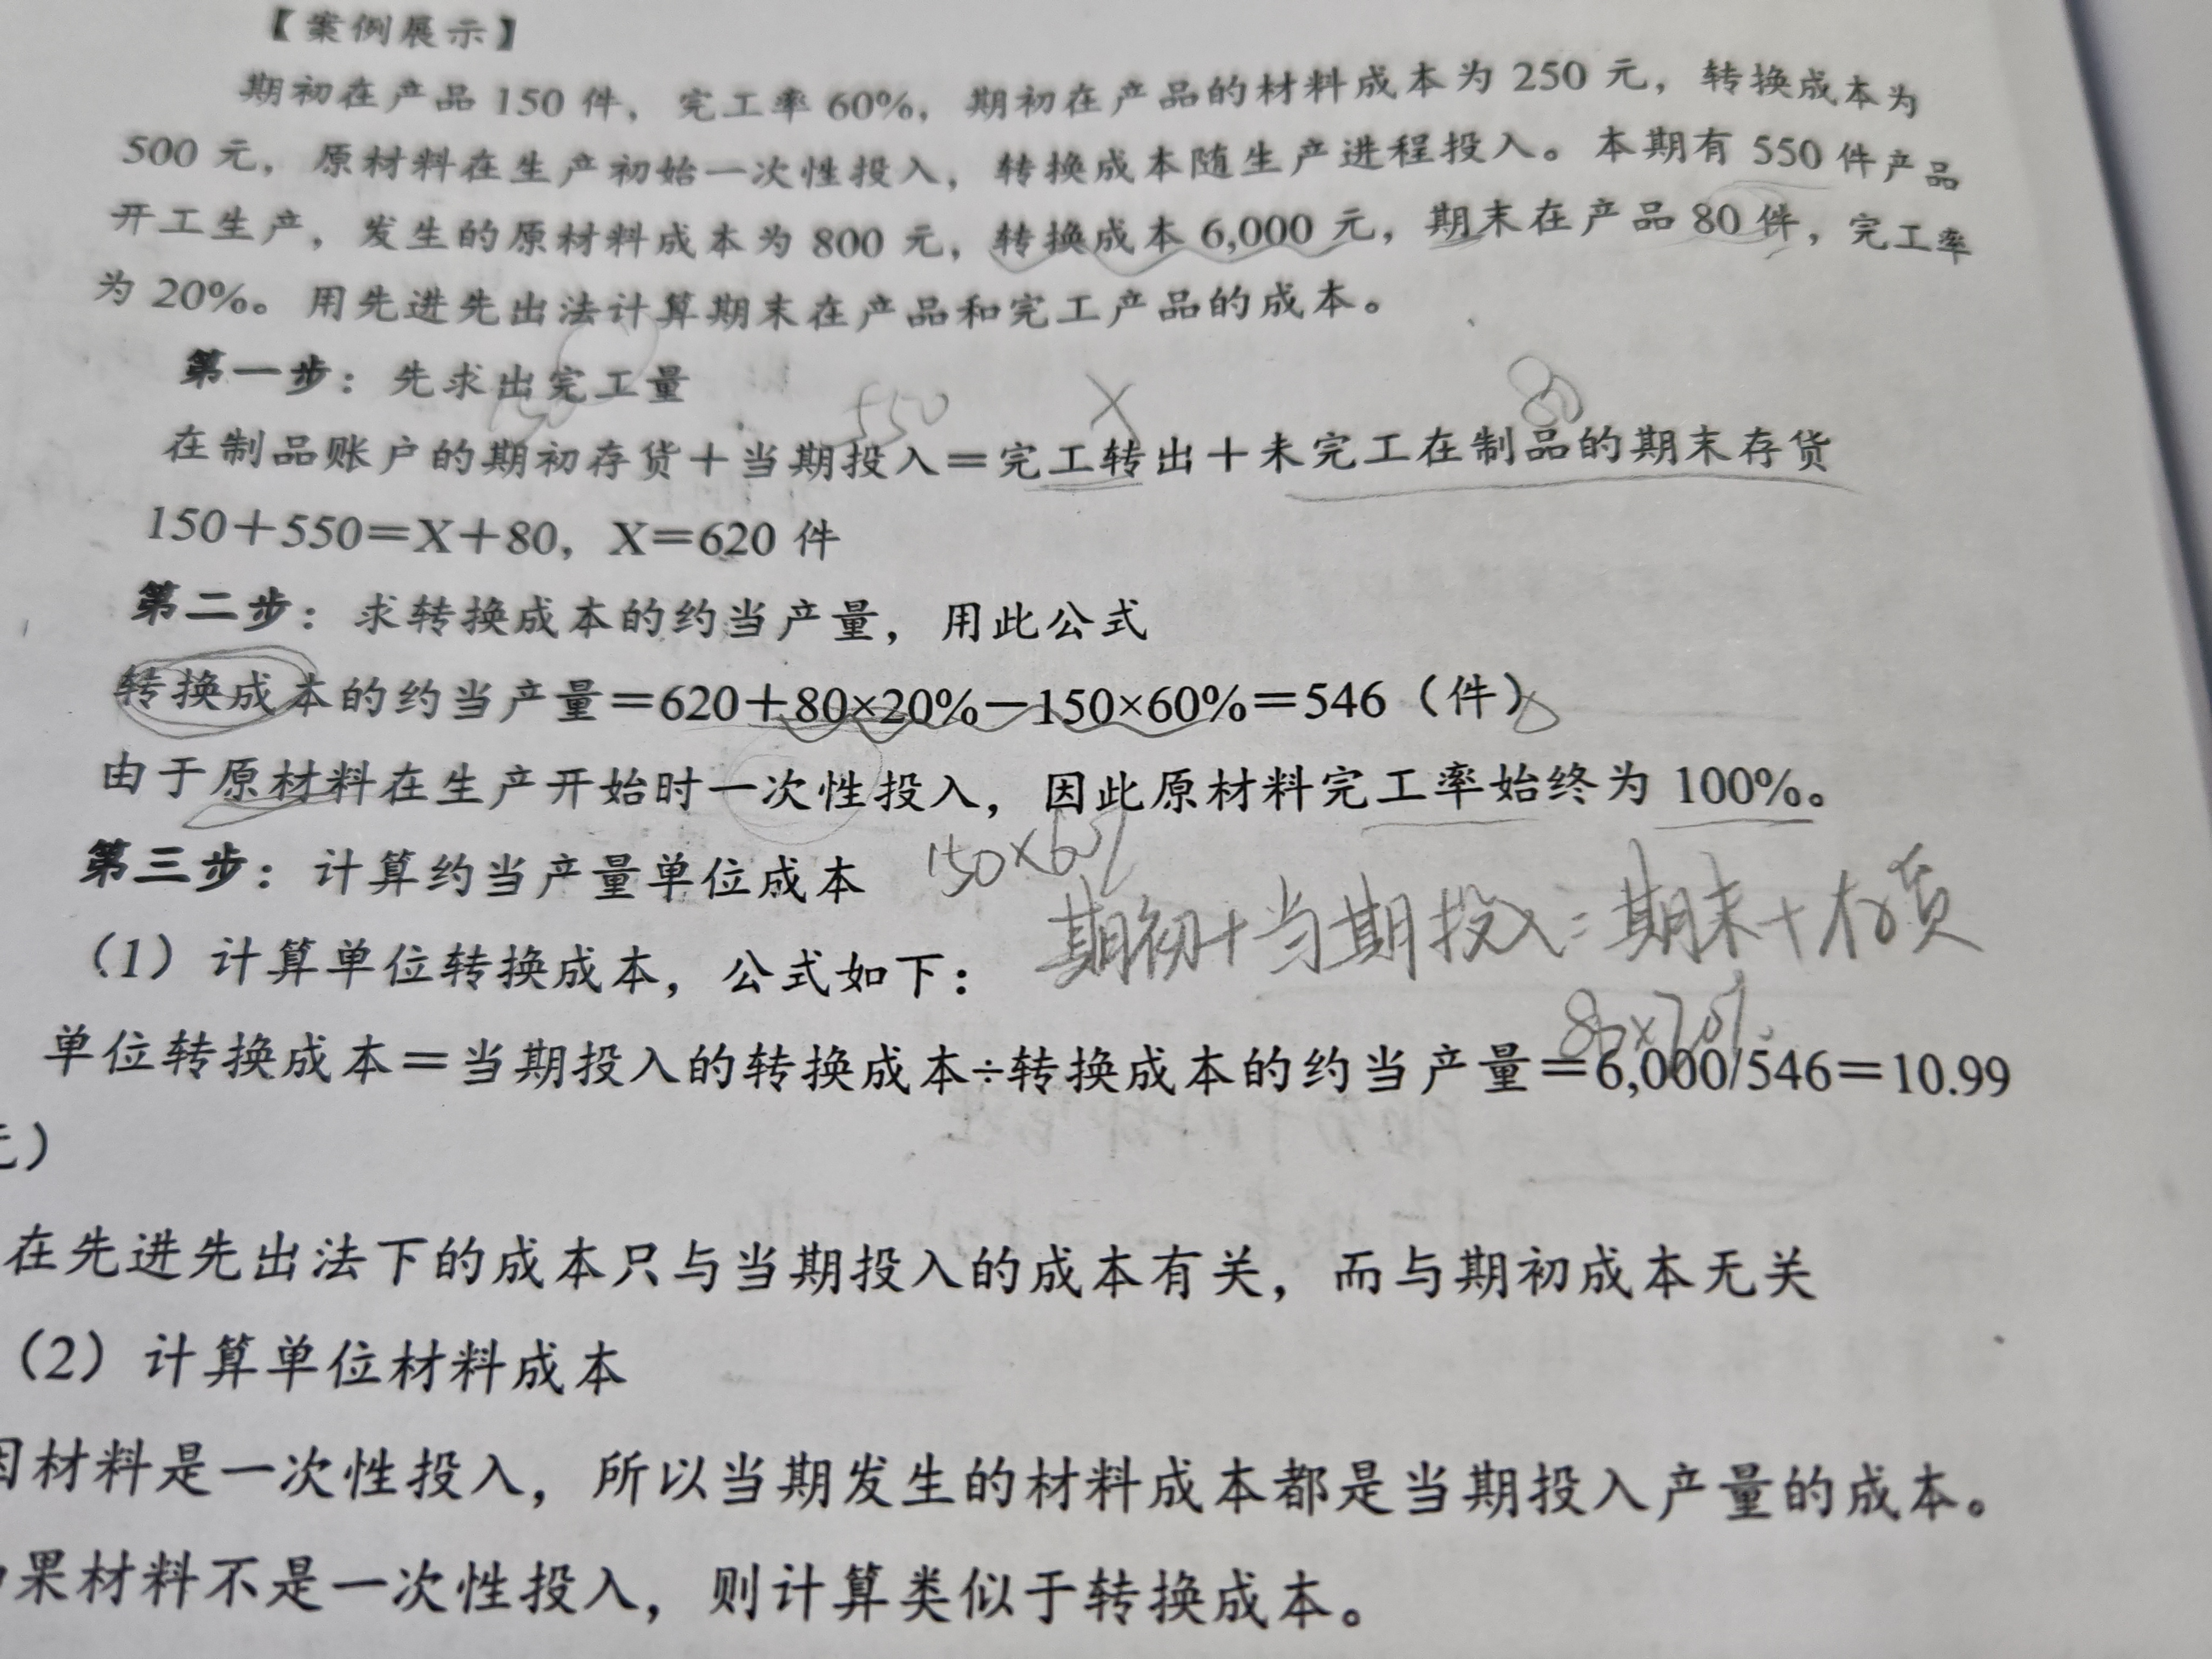 【案例展示】
期初在产品 150 件，完工率 60%，期初在产品的材料成本为 250 元，转换成本为
500 元，原材料在生产初始一次性投入，转换成本随生产进程投入。本期有 550 件产品
开工生产，发生的原材料成本为 800 元，转换成本 6,000 元，期末在产品 80 件，完工率
为 20%。用先进先出法计算期末在产品和完工产品的成本。
第一步：先求出完工量
150 550 X 80
在制品账户的期初存货＋当期投入＝完工转出＋未完工在制品的期末存货
150＋550＝X＋80，X＝620 件
第二步：求转换成本的约当产量，用此公式
转换成本的约当产量＝620＋80×20%－150×60%＝546（件）
由于原材料在生产开始时一次性投入，因此原材料完工率始终为 100%。
第三步：计算约当产量单位成本
150×60%
期初+当期投入=期末+存货
（1）计算单位转换成本，公式如下：
80×20%
单位转换成本＝当期投入的转换成本÷转换成本的约当产量＝6,000/546＝10.99
元）
在先进先出法下的成本只与当期投入的成本有关，而与期初成本无关
（2）计算单位材料成本
因材料是一次性投入，所以当期发生的材料成本都是当期投入产量的成本。
果材料不是一次性投入，则计算类似于转换成本。